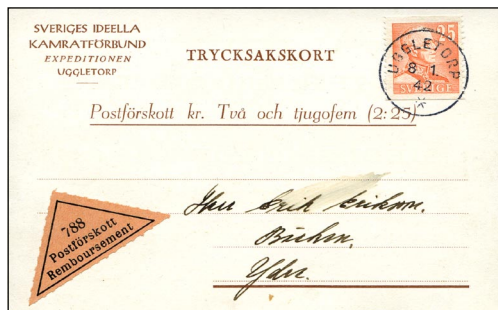 SVERIGES IDEELLA
KAMRATFÖRBUND
EXPEDITIONEN
UGGLETORP
TRYCKSAKSKORT
25
SVERIGE
UGGLETORP
8 1
42
Postförskott kr. Två och tjugofem (2:25)
788
Postförskott
Remboursement
Herr Erik Erikson.
Ydre.